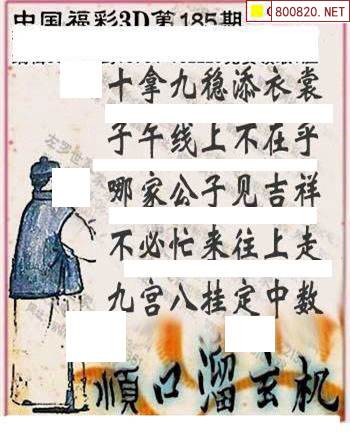 中国福彩3D第185期
800820.NET
十拿九稳添衣裳
子午线上不在乎
哪家公子见吉祥
不必忙来往上走
九宫八挂定中数
顺口溜玄机